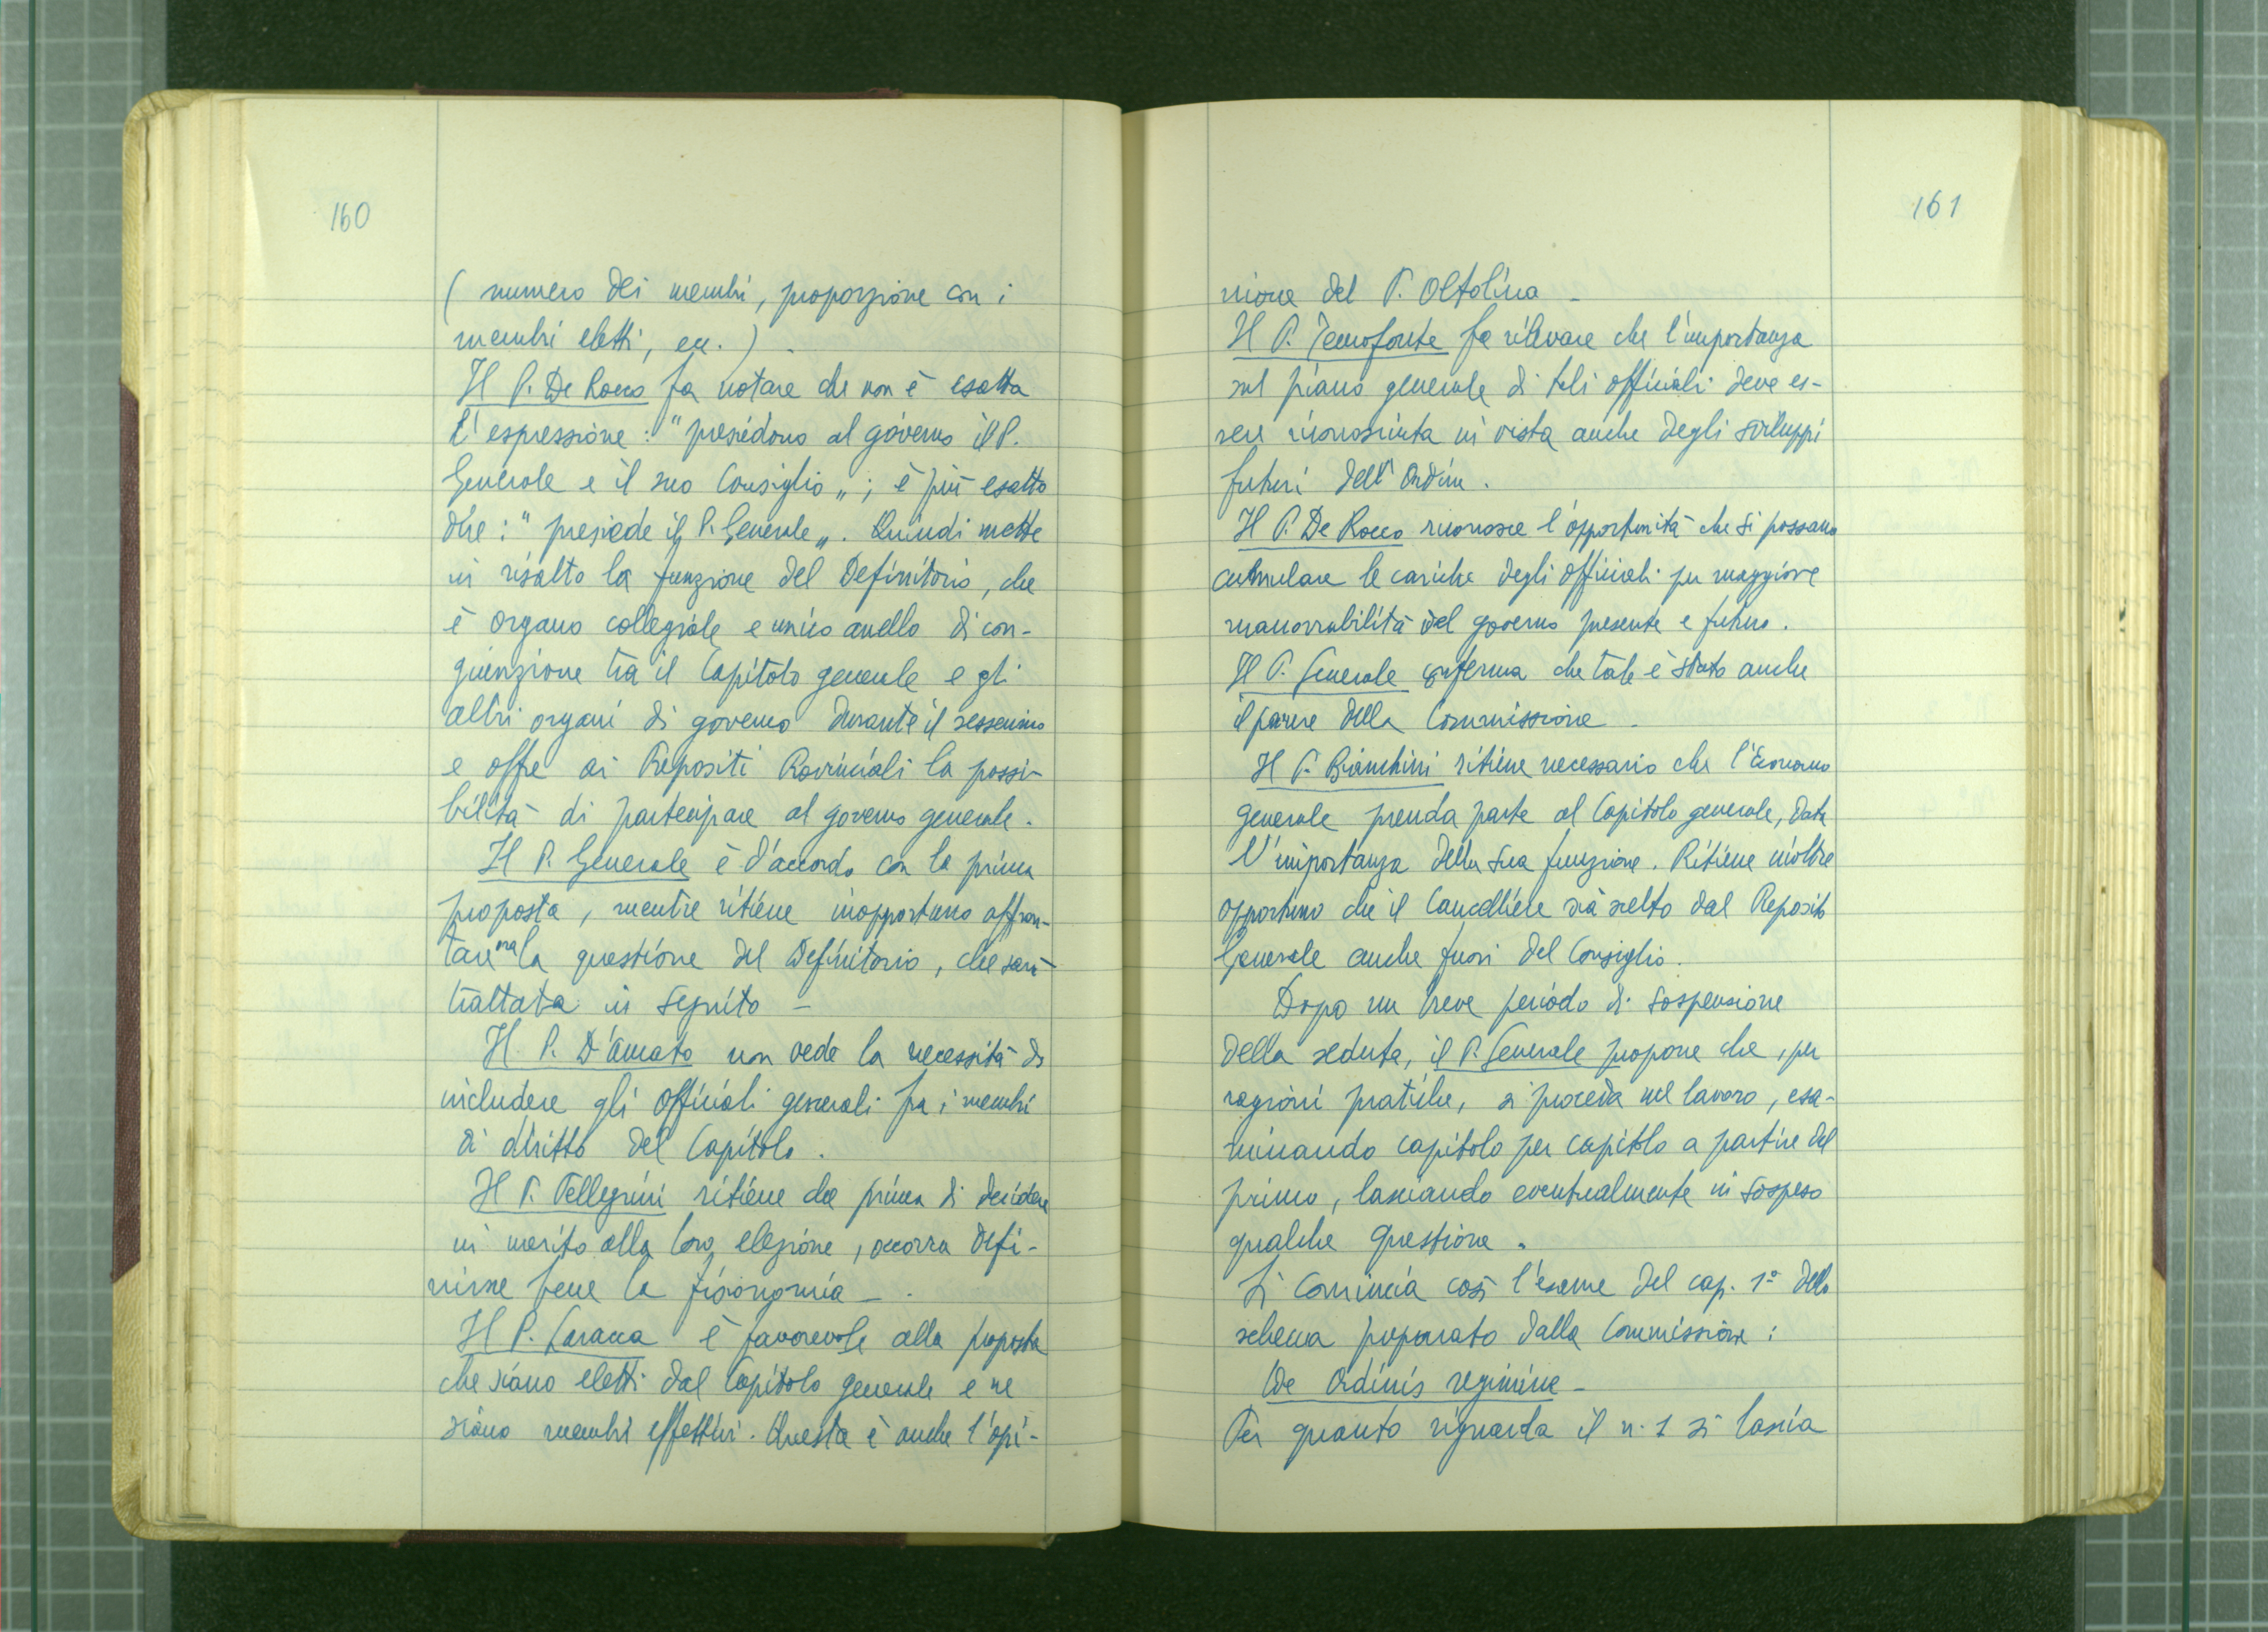 160
( numero dei membri, proporzione con i
membri eletti, ecc. ) .
Il P. De Rocco fa notare che non è esatta
l'espressione : "presiedono al governo il P.
Generale e il suo Consiglio„ ; è più esatto
dire : "presiede il P. Generale„. Quindi mette
in risalto la funzione del Definitorio, che
è organo collegiale e unico anello di con-
giunzione tra il Capitolo generale e gli
altri organi di governo durante il sessennio
e offre ai Prepositi Provinciali la possi-
bilità di partecipare al governo generale.
Il P. Generale è d'accordo con la prima
proposta, mentre ritiene inopportuno affron-
tare ora la questione del Definitorio, che sarà
trattata in seguito –
Il P. D'Amato non vede la necessità di
includere gli officiali generali fra i membri
di diritto del Capitolo .
Il P. Pellegrini ritiene che prima di decidere
in merito alla loro elezione, occorra defi-
nirne bene la fisionomia – .
Il P. è favorevole alla proposta
che siano eletti dal Capitolo generale e ne
siano membri effettivi. Questa è anche l'opi-
161
nione del P. Oltolina –
Il P. Temofonte fa rilevare che l'importanza
sul piano generale di tali officiali deve es-
sere riconosciuta in vista anche degli sviluppi
futuri dell'Ordine .
Il P. De Rocco riconosce l'opportunità che si possano
cumulare le cariche degli officiali per maggiore
manovrabilità del governo presente e futuro .
Il P. Generale conferma che tale è stato anche
il parere della Commissione –
Il P. Bianchini ritiene necessario che l'Economo
generale prenda parte al Capitolo generale, data
l'importanza della sua funzione. Ritiene inoltre
opportuno che il Cancelliere sia scelto dal Preposito
Generale anche fuori del Consiglio .
Dopo un breve periodo di sospensione
della seduta, il P. Generale propone che, per
ragioni pratiche, si proceda nel lavoro, esa-
minando capitolo per capitolo a partire dal
primo, lasciando eventualmente in sospeso
qualche questione .
Si comincia così l'esame del cap. 1º dello
schema preparato dalla Commissione :
De Ordinis regimine –
Per quanto riguarda il n. 1 si lascia